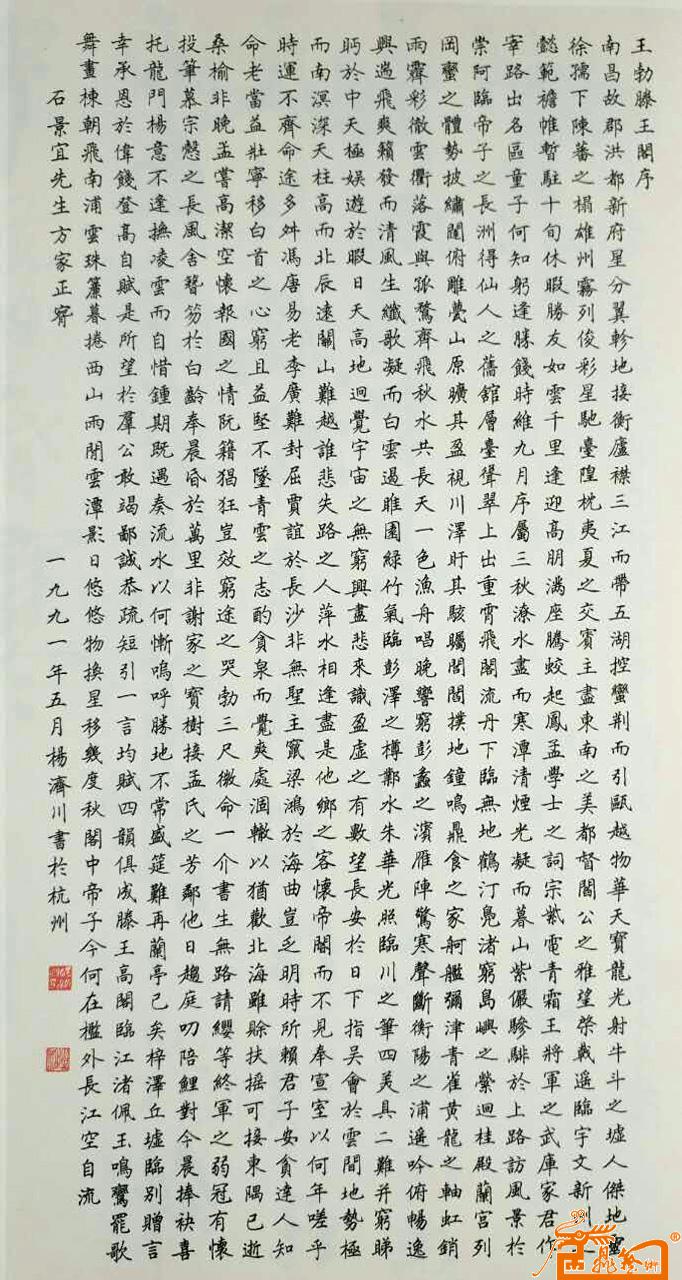 王勃滕王閣序
南昌故郡洪都新府星分翼軫地接衡廬襟三江而帶五湖控蠻荊而引甌越物華天寶龍光射牛斗之墟人傑地靈
徐孺下陳蕃之榻雄州霧列俊彩星馳臺隍枕夷夏之交賓主盡東南之美都督閻公之雅望棨戟遙臨宇文新州之
懿範襜帷暫駐十旬休暇勝友如雲千里逢迎高朋滿座騰蛟起鳳孟學士之詞宗紫電青霜王將軍之武庫家君作
宰路出名區童子何知躬逢勝餞時維九月序屬三秋潦水盡而寒潭清煙光凝而暮山紫儼驂騑於上路訪風景於
崇阿臨帝子之長洲得仙人之舊館層臺聳翠上出重霄飛閣流丹下臨無地鶴汀鳧渚窮島嶼之縈迴桂殿蘭宮列
岡巒之體勢披繡闥俯雕甍山原曠其盈視川澤盱其駭矚閭閻撲地鐘鳴鼎食之家舸艦彌津青雀黃龍之軸虹銷
雨霽彩徹雲衢落霞與孤鶩齊飛秋水共長天一色漁舟唱晚響窮彭蠡之濱雁陣驚寒聲斷衡陽之浦遙吟俯暢逸
興遄飛爽籟發而清風生纖歌凝而白雲遏睢園綠竹氣臨彭澤之樽鄴水朱華光照臨川之筆四美具二難并窮睇
眄於中天極娛遊於暇日天高地迥覺宇宙之無窮興盡悲來識盈虛之有數望長安於日下指吳會於雲間地勢極
而南溟深天柱高而北辰遠關山難越誰悲失路之人萍水相逢盡是他鄉之客懷帝閽而不見奉宣室以何年嗟乎
時運不齊命途多舛馮唐易老李廣難封屈賈誼於長沙非無聖主竄梁鴻於海曲豈乏明時所賴君子安貧達人知
命老當益壯寧移白首之心窮且益堅不墜青雲之志酌貪泉而覺爽處涸轍以猶歡北海雖賒扶搖可接東隅已逝
桑榆非晚孟嘗高潔空懷報國之情阮籍猖狂豈效窮途之哭勃三尺微命一介書生無路請纓等終軍之弱冠有懷
投筆慕宗慤之長風舍簪笏於百齡奉晨昏於萬里非謝家之寶樹接孟氏之芳鄰他日趨庭叨陪鯉對今晨捧袂喜
托龍門楊意不逢撫凌雲而自惜鍾期既遇奏流水以何慚嗚呼勝地不常盛筵難再蘭亭已矣梓澤丘墟臨別贈言
幸承恩於偉餞登高自賦是所望於羣公敢竭鄙誠恭疏短引一言均賦四韻俱成滕王高閣臨江渚佩玉鳴鸞罷歌
舞畫棟朝飛南浦雲珠簾暮捲西山雨閒雲潭影日悠悠物換星移幾度秋閣中帝子今何在檻外長江空自流
石景宜先生方家正 一九九一年五月楊濟川書於杭州